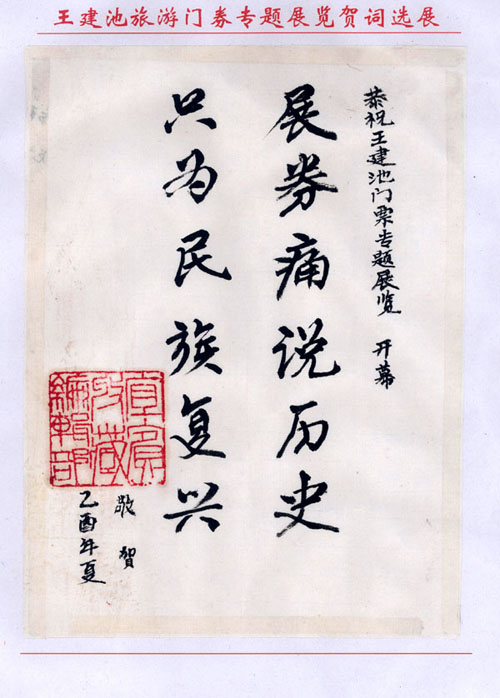 王建池旅游门券专题展览贺词选展
恭祝王建池门票专题展览 开幕
展券痛说历史
只为民族复兴
敬贺
乙酉年夏
宜賓
收藏
編輯部